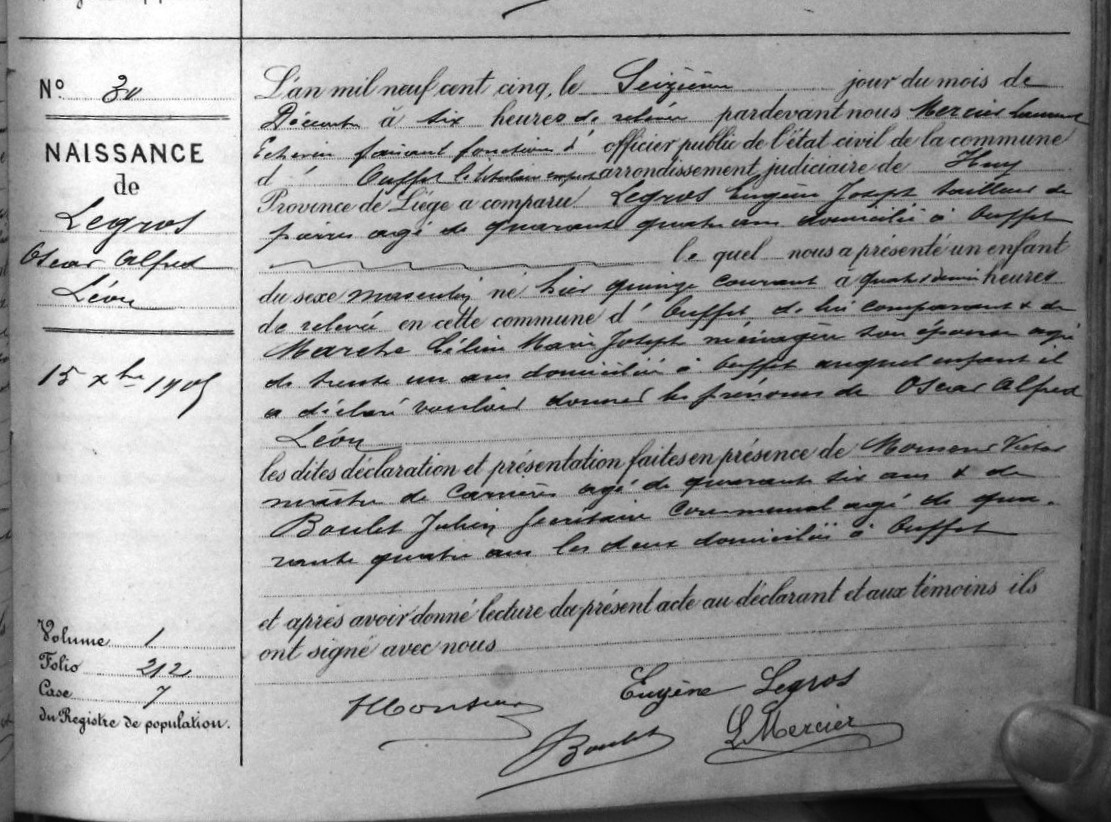 N° 30
NAISSANCE
de
Legros
Oscar Alfred
Léon
15 xbre 1905
Volume 1
Folio 212
Case 7
du Registre de population.
L'an mil neuf cent cinq, le Seizième jour du mois de
Décembre à six heures de relevée pardevant nous Mercier Laurent
Echevin faisant fonctions d' officier public de l'état civil de la commune
d' Ouffet le titulaire empêché arrondissement judiciaire de Huy
Province de Liége a comparu Legros Eugène Joseph tailleur de
pierres agé de quarante quatre ans domicilié à Ouffet
le quel nous a présenté un enfant
du sexe masculin né hier quinze courant à quatre &demi heures
de relevée en cette commune d' Ouffet de lui comparant & de
Marche Céline Marie Joseph ménagère son épouse agée
de trente un ans domiciliée à Ouffet auquel enfant il
a déclaré vouloir donner les prénoms de Oscar Alfred
Léon
les dites déclaration et présentation faites en présence de Victor
maître de Carrières agé de quarante six ans & de
Boulet Julien Secrétaire Communal agé de qua-
rante quatre ans les deux domiciliés à Ouffet
et après avoir donné lecture du présent acte au déclarant et aux témoins ils
ont signé avec nous
Eugène Legros
Boulet L Mercier